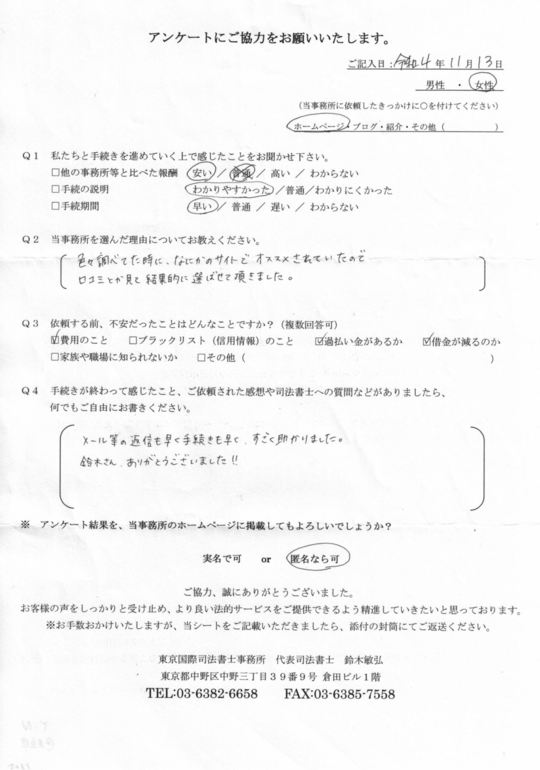 アンケートにご協力をお願いいたします。
ご記入日：令和4年11月13日
男性 ・ 女性
（当事務所に依頼したきっかけに○を付けてください）
ホームページ・ブログ・紹介・その他（ ）
Q１ 私たちと手続きを進めていく上で感じたことをお聞かせ下さい。
□他の事務所等と比べた報酬 安い ／ 普通 ／ 高い ／ わからない
□手続の説明 わかりやすかった ／普通／わかりにくかった
□手続期間 早い ／ 普通 ／ 遅い ／ わからない
Q２ 当事務所を選んだ理由についてお教えください。
色々調べてた時に、なにかのサイトでオススメされていたので
口コミとか見て結果的に選ばせて頂きました。
Q３ 依頼する前、不安だったことはどんなことですか？（複数回答可）
☑費用のこと □ブラックリスト（信用情報）のこと ☑過払い金があるか ☑借金が減るのか
□家族や職場に知られないか □その他（ ）
Q４ 手続きが終わって感じたこと、ご依頼された感想や司法書士への質問などがありましたら、
何でもご自由にお書きください。
メール等の返信も早く手続きも早く、すごく助かりました。
鈴木さん、ありがとうございました!!
※ アンケート結果を、当事務所のホームページに掲載してもよろしいでしょうか？
実名で可 or 匿名なら可
ご協力、誠にありがとうございました。
お客様の声をしっかりと受け止め、より良い法的サービスをご提供できるよう精進していきたいと思っております。
※お手数おかけいたしますが、当シートをご記載いただきましたら、添付の封筒にてご返送ください。
東京国際司法書士事務所 代表司法書士 鈴木敏弘
東京都中野区中野三丁目３９番９号 倉田ビル１階
TEL:03-6382-6658 FAX:03-6385-7558